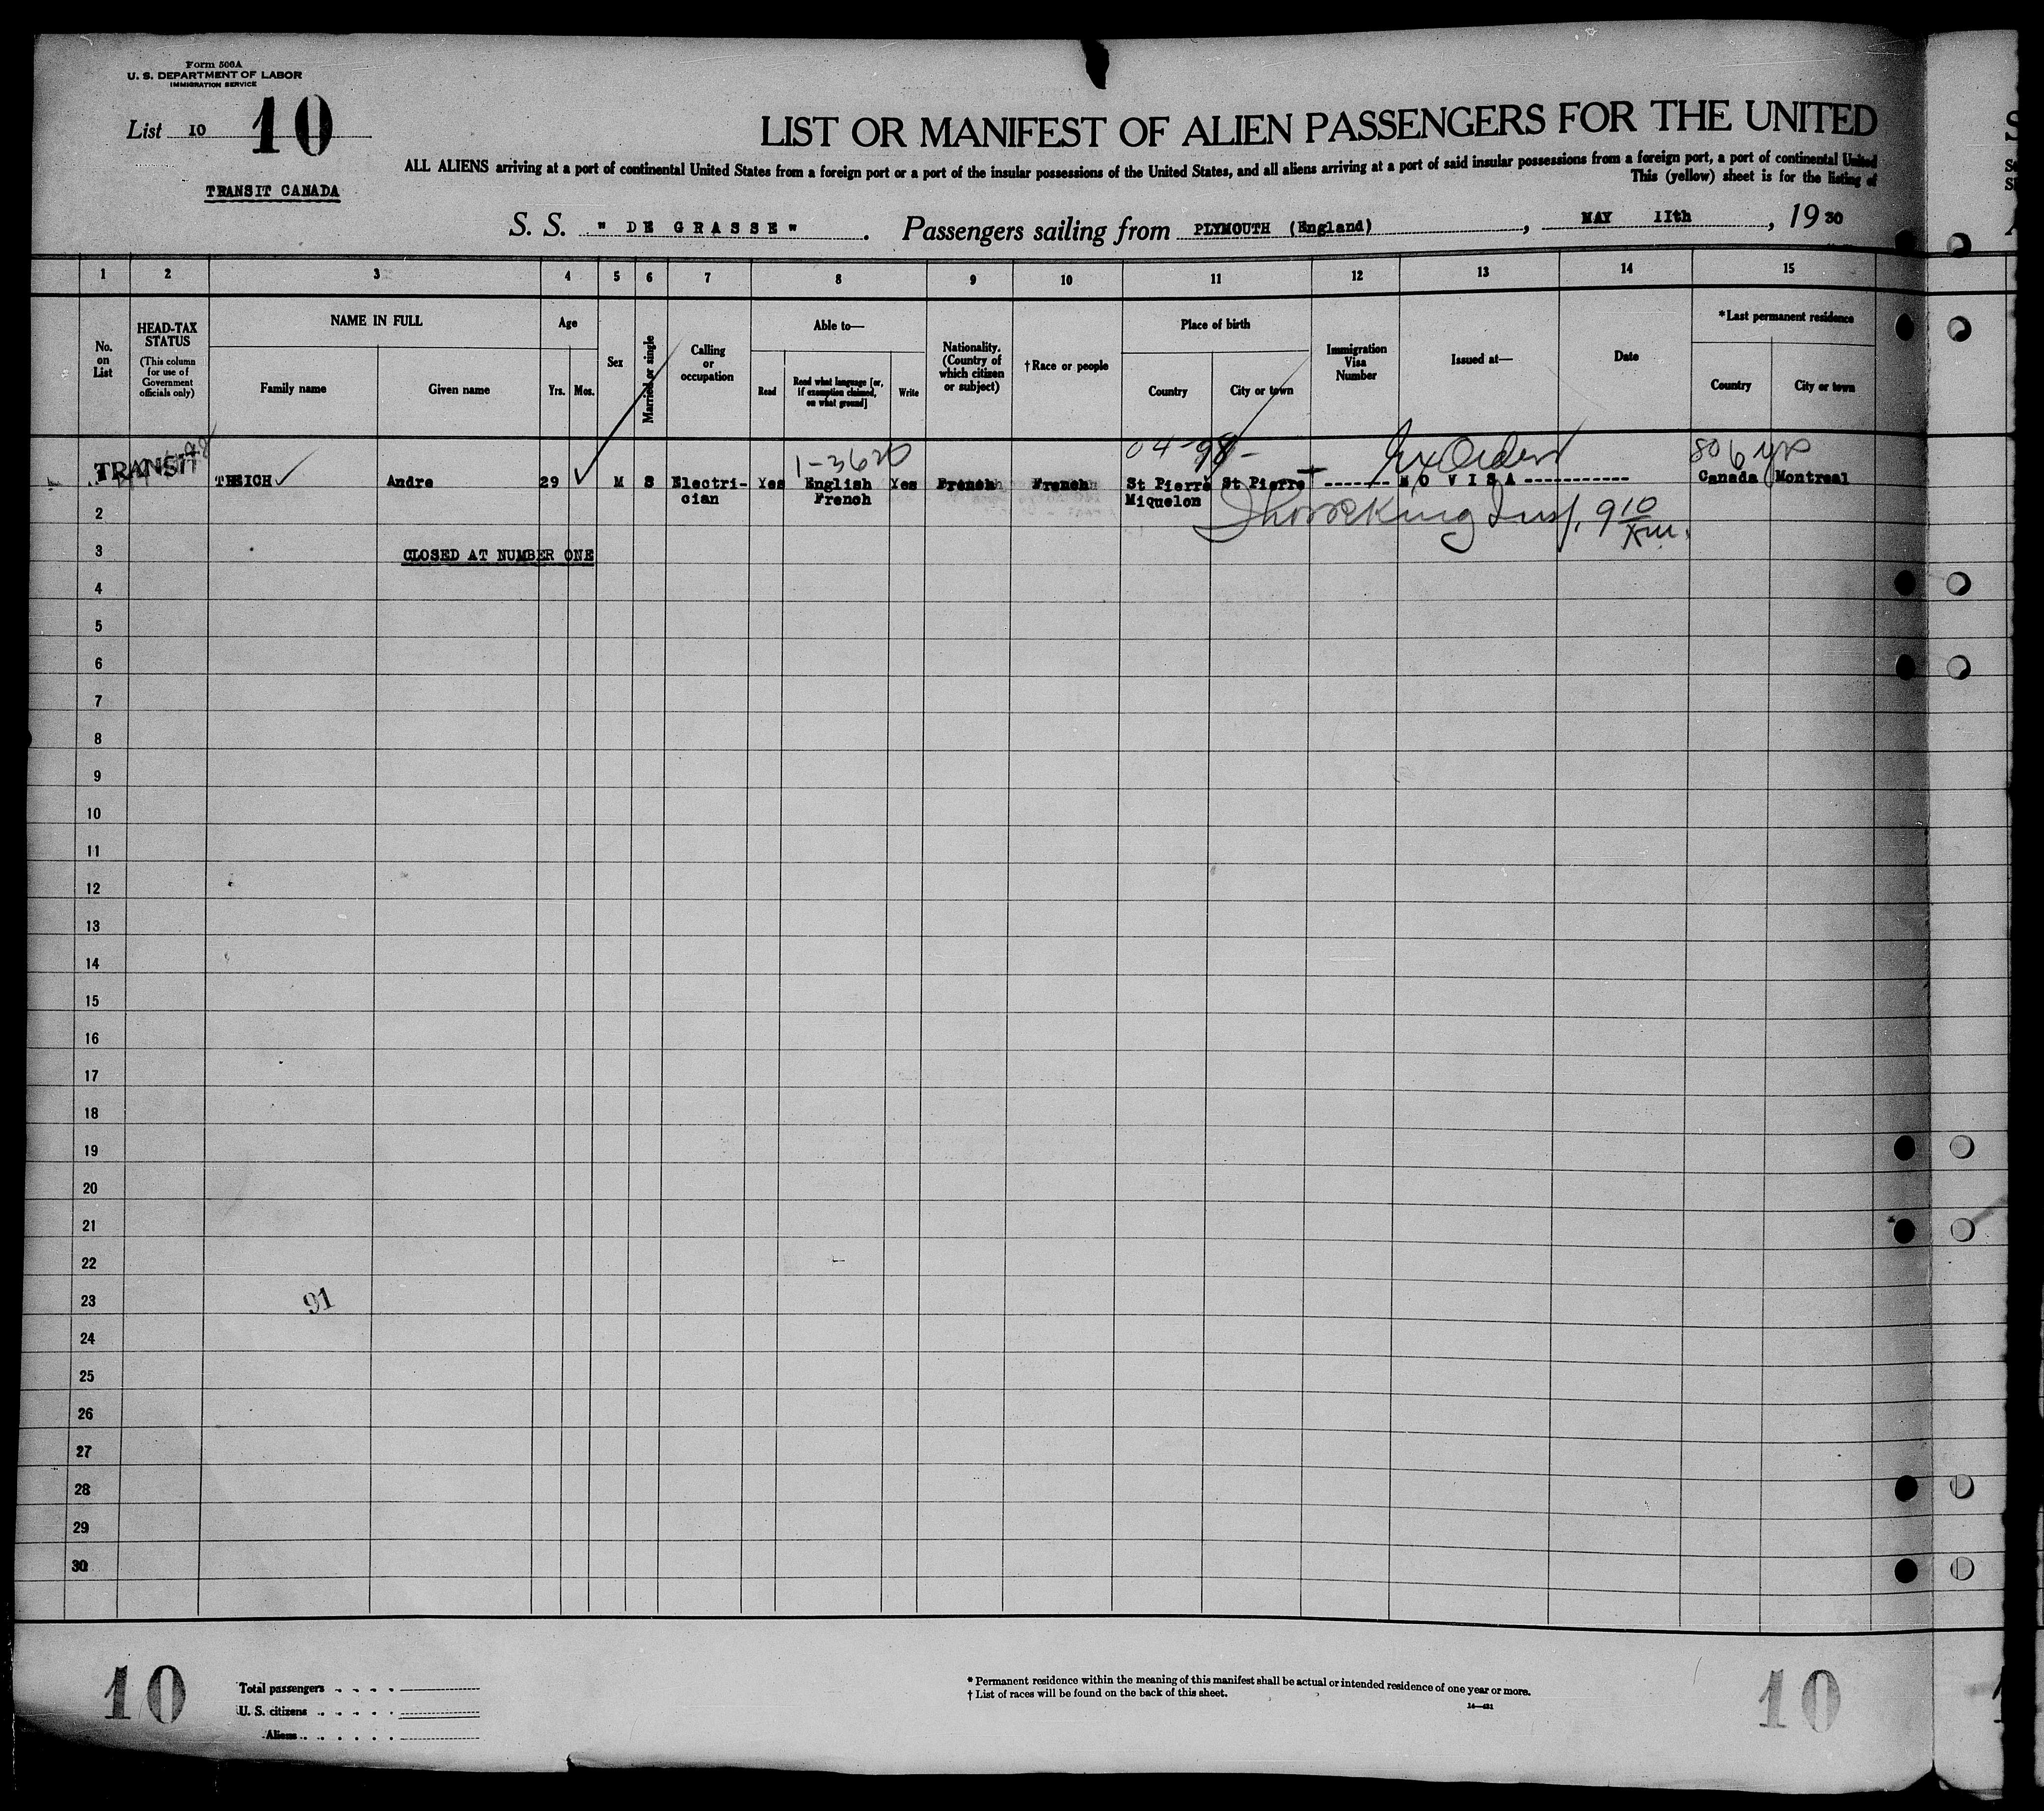 Form 500A
U. S. DEPARTMENT OF LABOR
IMMIGRATION SERVICE
List 10 10
TRANSIT CANADA
LIST OR MANIFEST OF ALIEN PASSENGERS FOR THE UNITED
ALL ALIENS arriving at a port of continental United States from a foreign port or a port of the insular possessions of the United States, and all aliens arriving at a port of said insular possessions from a foreign port, a port of continental United
This (yellow) sheet is for the listing of
S. S. " DE GRASSE " . Passengers sailing from PLYMOUTH (England) , MAY 11th , 19 30
1 2 3 4 5 6 7 8 9 10 11 12 13 14 15
No. on List
HEAD-TAX STATUS
(This column for use of Government officials only)
NAME IN FULL
Family name
Given name
Age
Yrs. Mos.
Sex
Married or single
Calling or occupation
Able to—
Read
Read what language [or, if exemption claimed, on what ground]
Write
Nationality. (Country of which citizen or subject)
† Race or people
Place of birth
Country
City or town
Immigration Visa Number
Issued at—
Date
*Last permanent residence
Country
City or town
1-3620 04-98- 806 yrs
TRANSIT THEICH Andre 29 M S Electri- Yes English Yes French French St Pierre St Pierre NO VISA Canada Montreal
cian French Miquelon
2
3 CLOSED AT NUMBER ONE
4
5
6
7
8
9
10
11
12
13
14
15
16
17
18
19
20
21
22
23 91
24
25
26
27
28
29
30
10
Total passengers
U. S. citizens
Aliens
* Permanent residence within the meaning of this manifest shall be actual or intended residence of one year or more.
† List of races will be found on the back of this sheet.
14—421
10